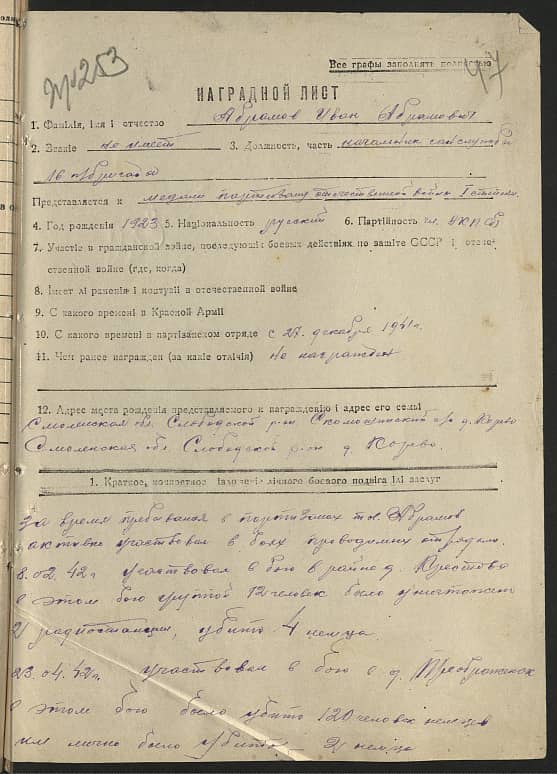 Пр253
Все графы заполнять полностью
47
НАГРАДНОЙ ЛИСТ
1. Фамілія, імя і отчество Абрамов Иван Абрамович
2. Званіе не имеет 3. Должность, часть начальник сан службы
16 п/бригады
Представляется к медали партизану отечественной войны I степени
4. Год рожденія 1923 5. Національность русский 6. Партійность чл. ВКП(б)
7. Участіе в гражданской войне, последующіх боевых действіях по защіте СССР і отече-
ственной войне (где, когда)
8. Імеет лі раненія і контузіі в отечественной войне
9. С какого времені в Красной Арміі
10. С какого времені в партізанском отряде с 27. декабря 1941г.
11. Чем ранее награжден (за какіе отлічія) не награжден
12. Адрес места рожденія представляемого к награжденію і адрес его семьі
Смоленская обл. Слободской р-он с/с д. Козево
Смоленская обл. Слободской р-он д. Козево.
1. Краткое, конкретное ізложеніе лічного боевого подвіга ілі заслуг
За время пребывания в партизанах тов. Абрамов
активно участвовал в боях проводимых отрядом.
8.02.42г участвовал в бою в районе д.
в этом бою группой 12 человек было уничтожено
2 радиостанции, убито 4 немца.
23.04.42г. участвовал в бою в д. Преображенск
в этом бою было убито 120 человек немцев
им лично было убито 2 немца